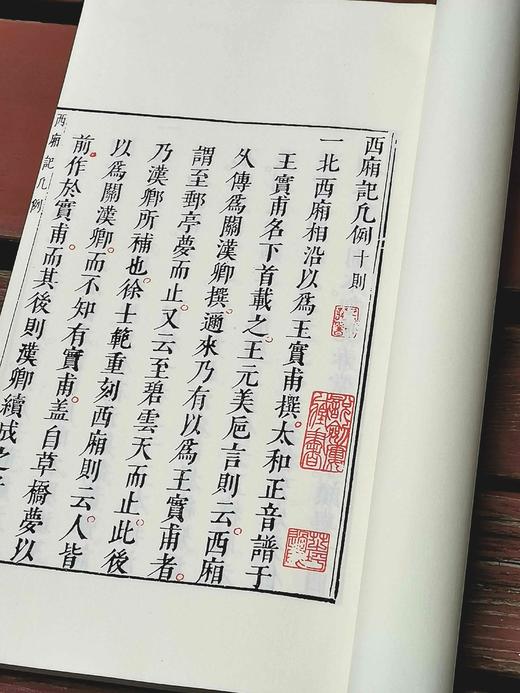 西廂記凡例十則
一北西廂相沿以爲王實甫撰太和正音譜于
王實甫名下首載之王元美巵言則云西廂
久傳爲關漢卿撰邇來乃有以爲王實甫者
謂至郵亭夢而止又云至碧雲天而止此後
乃漢卿所補也徐士範重刻西廂則云人皆
以爲關漢卿而不知有實甫蓋自草橋夢以
前作於實甫而其後則漢卿續成之
西廂記凡例